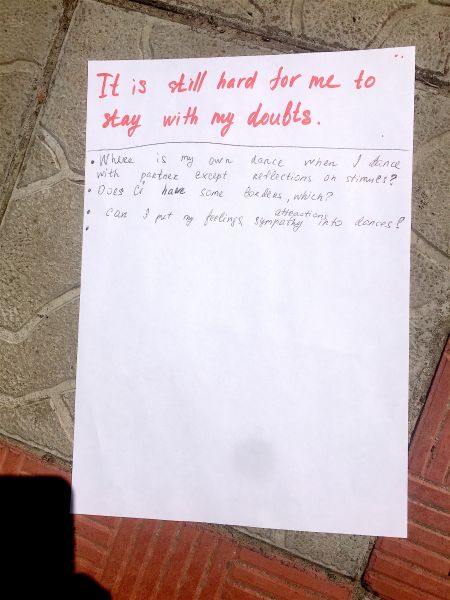 It is still hard for me to
stay with my doubts.
• Where is my own dance when I dance
with partner except reflections on stimuls?
• Does CI have some borders, which?
attractions
• Can I put my feelings, sympathy into dances?
•